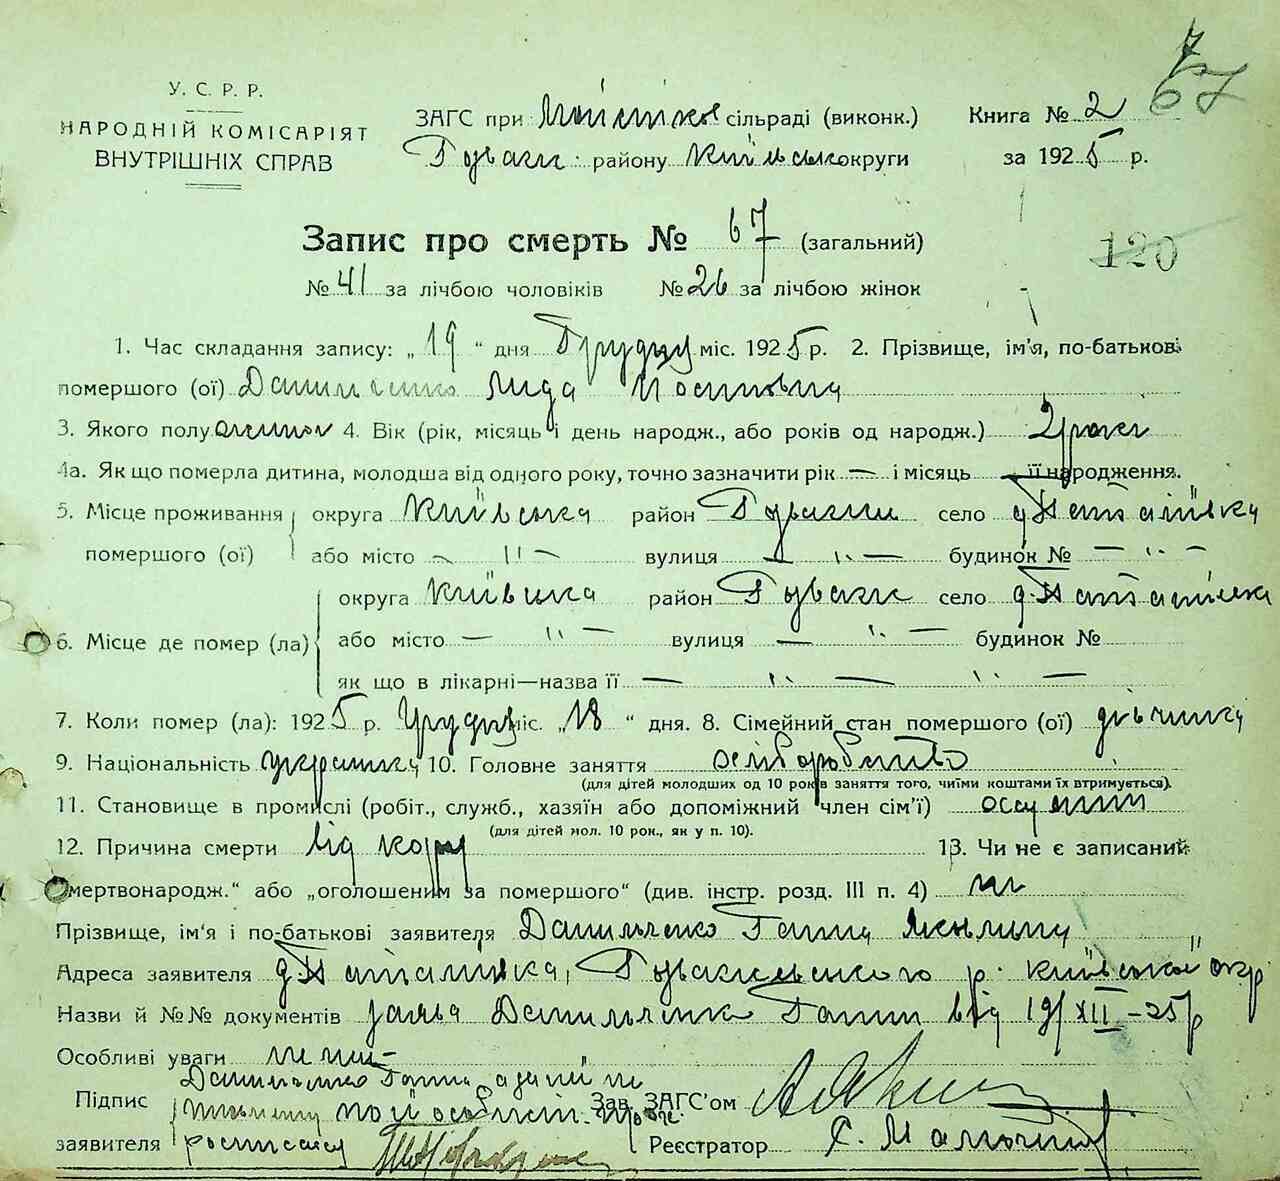 7
67
У. С. Р. Р.
НАРОДНІЙ КОМІСАРІЯТ
ВНУТРІШНІХ СПРАВ
ЗАГС при сільраді (виконк.)
району Київської округи
Книга № 2
за 1925 р.
Запис про смерть № 67 (загальний)
120
№ 41 за лічбою чоловіків № 26 за лічбою жінок
1. Час складання запису: „19“ дня Грудня міс. 1925 р. 2. Прізвище, ім'я, по-батькові
помершого (ої) Данильченко Лида Йосиповна
3. Якого полу 4. Вік (рік, місяць і день народж., або років од народж.) 2 роки
4а. Як що померла дитина, молодша від одного року, точно зазначити рік — і місяць — її народження.
5. Місце проживання округа Київська район село
помершого (ої) або місто — " — вулиця — " — будинок № — " —
округа Київська район село
6. Місце де помер (ла) або місто — " — вулиця — " — будинок №
як що в лікарні—назва її — " — " —
7. Коли помер (ла): 1925 р. Грудня міс. „18“ дня. 8. Сімейний стан помершого (ої) дівчинка
9. Національність українка 10. Головне заняття хліборобство
(для дітей молодших од 10 років заняття того, чиїми коштами їх втримується).
11. Становище в промислі (робіт., служб., хазяїн або допоміжний член сім'ї)
(для дітей мол. 10 рок., як у п. 10).
12. Причина смерти від кору 13. Чи не є записаний
„мертвонародж.“ або „оголошеним за помершого“ (див. інстр. розд. III п. 4) ні
Прізвище, ім'я і по-батькові заявителя Данильченко Ганна
Адреса заявителя р. Київської окр
Назви й №№ документів заява Данильченко Ганни від 19/XII–25 р
Особливі уваги немає
Данильченко Ганна, а за неї не
Підпис особист. Зав. ЗАГС'ом
заявителя Реєстратор